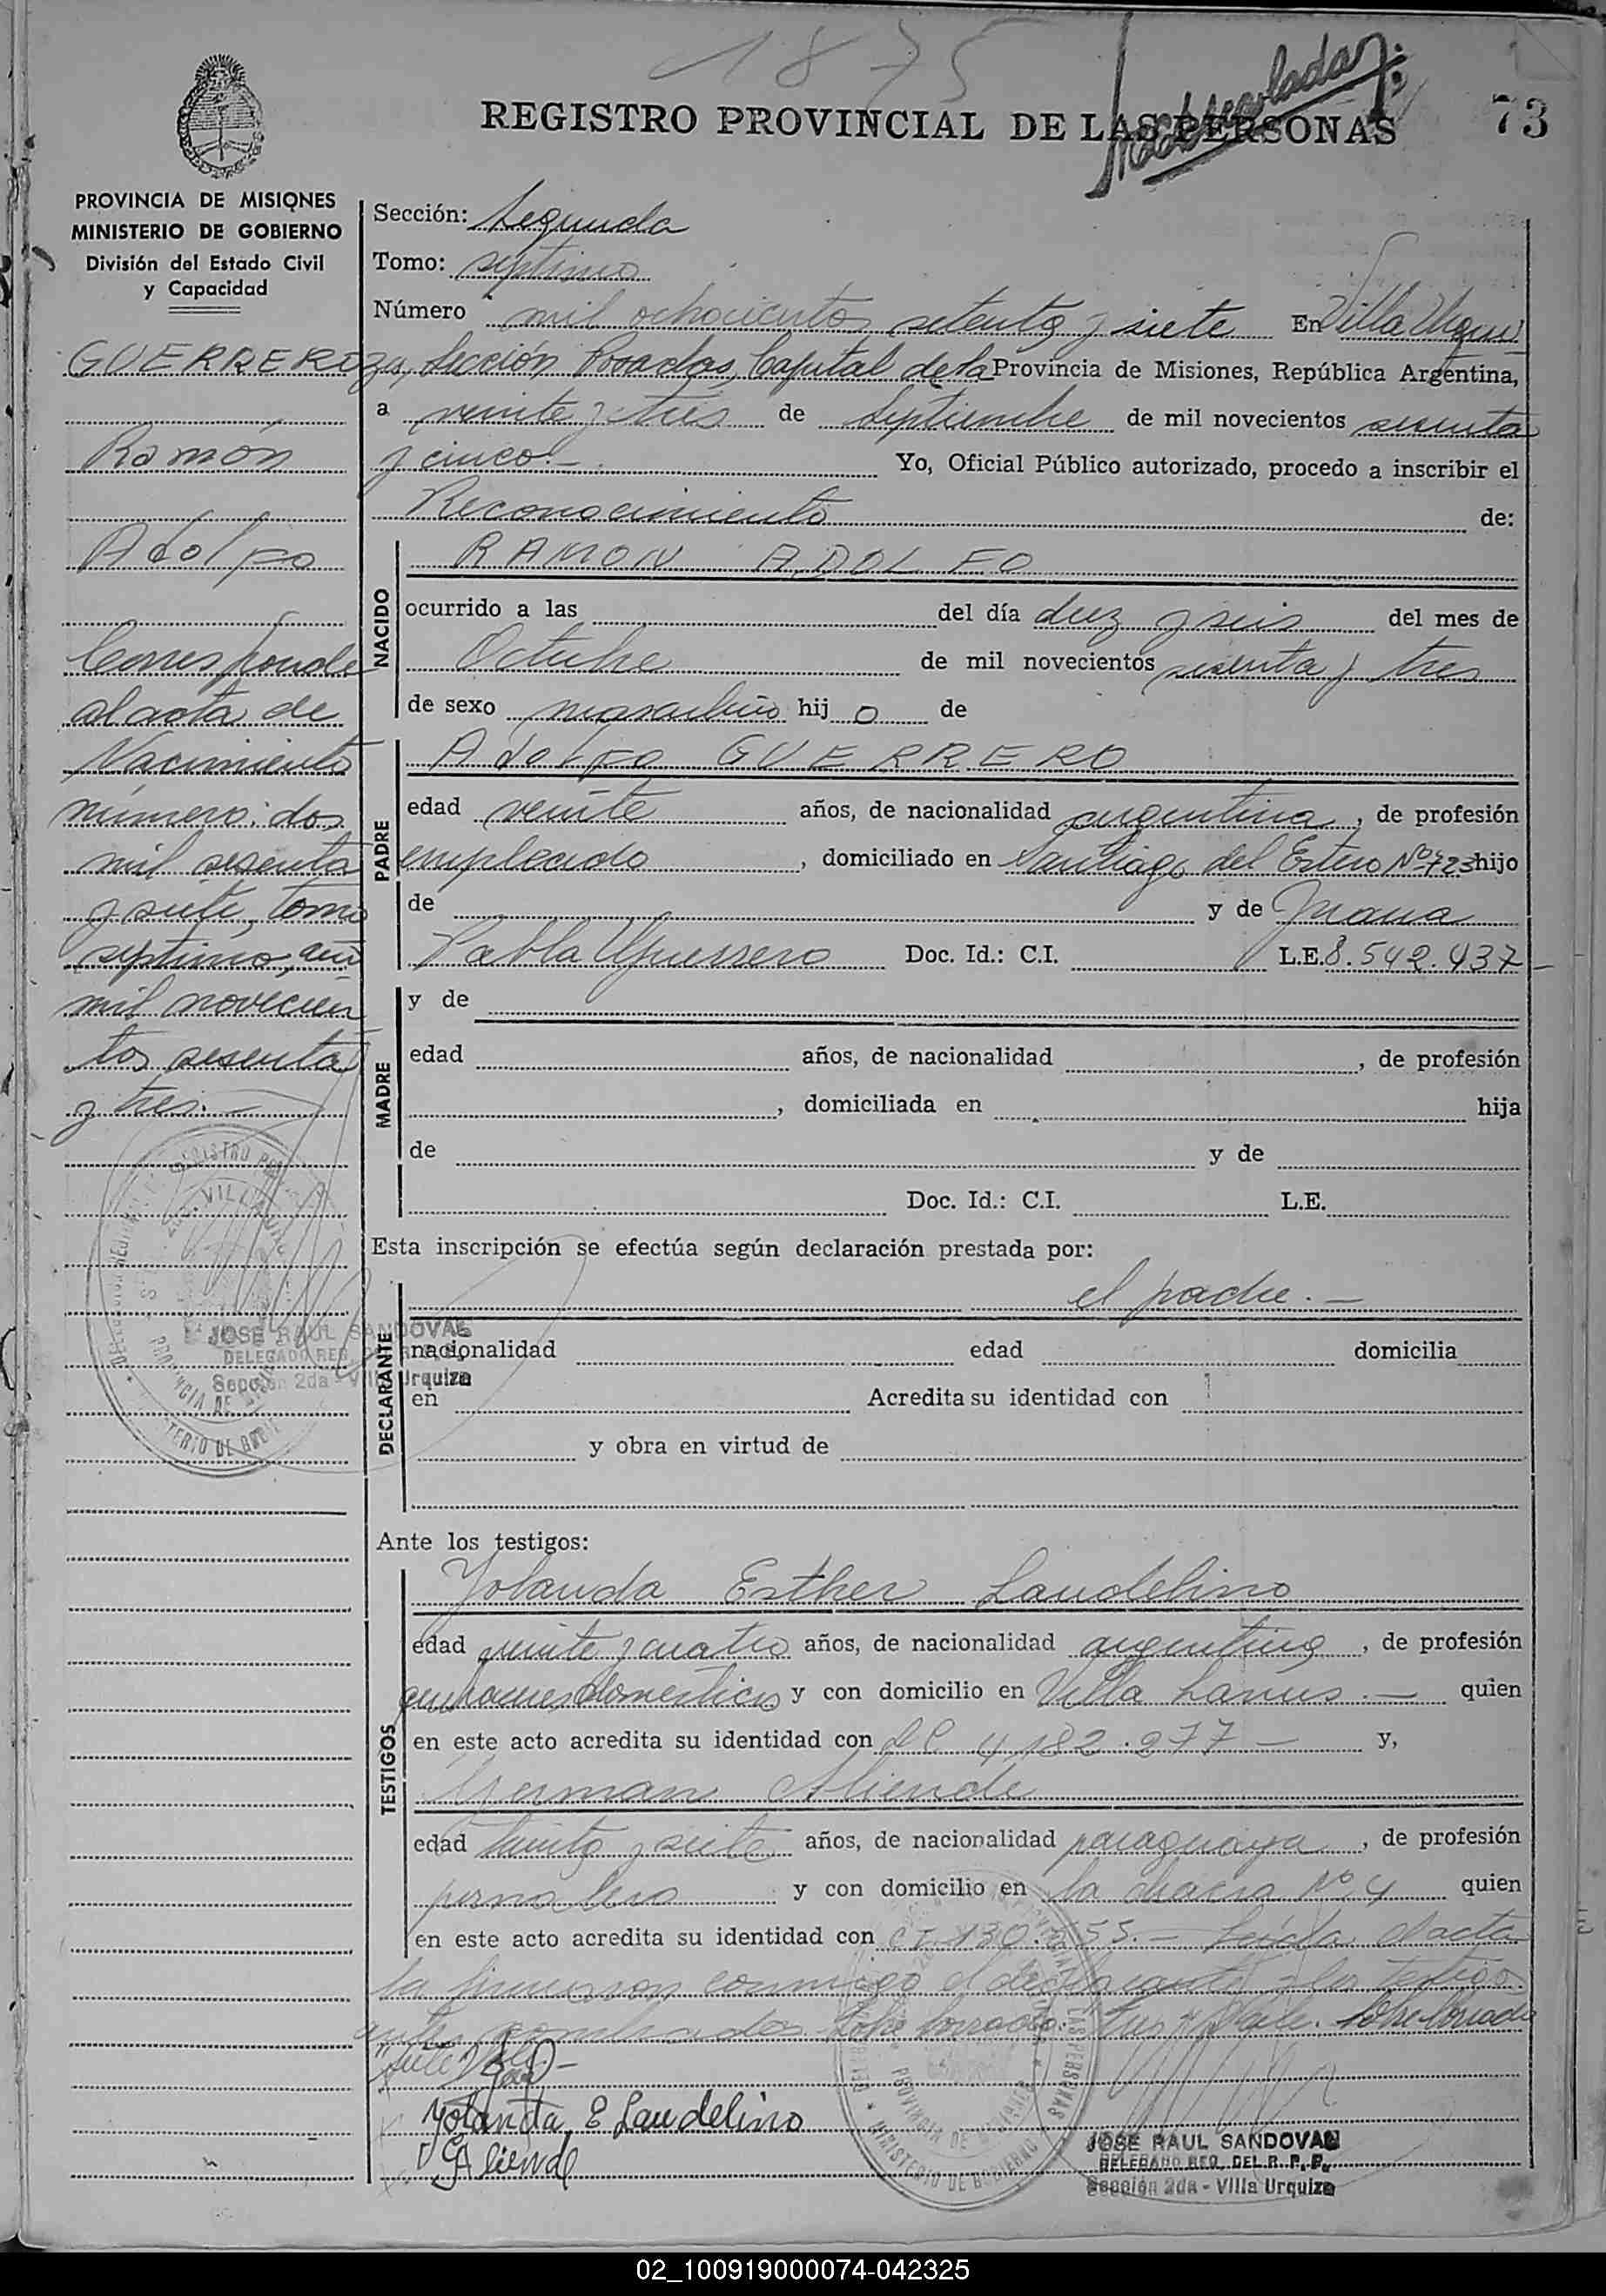 1875
REGISTRO PROVINCIAL DE LAS PERSONAS
73
PROVINCIA DE MISIONES
MINISTERIO DE GOBIERNO
División del Estado Civil
y Capacidad
GUERRERO
Ramón
Adolfo
Corresponde
al acta de
Nacimiento
número: dos
mil sesenta
y siete, tomo
septimo, año
mil novecien
tos sesenta
y tres.-
JOSE RAUL SANDOVAL
DELEGADO REG
Sección 2da - Villa Urquiza
Sección: Segunda
Tomo: septimo
Número mil ochocientos setenta y siete En Villa Urqui
za, Sección Posadas, Capital de la Provincia de Misiones, República Argentina,
a veinte y tres de Septiembre de mil novecientos sesenta
y cinco.- Yo, Oficial Público autorizado, procedo a inscribir el
Reconocimiento de:
NACIDO
RAMON ADOLFO
ocurrido a las del día diez y seis del mes de
Octubre de mil novecientos sesenta y tres
de sexo masculino hijo de
PADRE
Adolfo GUERRERO
edad veinte años, de nacionalidad argentina, de profesión
empleado, domiciliado en Santiago del Estero Nº 723 hijo
de y de Juana
Pabla Guerrero Doc. Id.: C.I. L.E. 8.542.437-
MADRE
y de
edad años, de nacionalidad , de profesión
, domiciliada en hija
de y de
Doc. Id.: C.I. L.E.
Esta inscripción se efectúa según declaración prestada por:
DECLARANTE
el padre.-
nacionalidad edad domicilia
en Acredita su identidad con
y obra en virtud de
Ante los testigos:
TESTIGOS
Yolanda Esther Laudelino
edad veinte y cuatro años, de nacionalidad argentina, de profesión
quehaceres domesticos y con domicilio en Villa Lanús.- quien
en este acto acredita su identidad con LC 4.182.277- y,
German Aliende
edad treinta y siete años, de nacionalidad paraguaya, de profesión
jornalero y con domicilio en la chacra Nº 4 quien
en este acto acredita su identidad con C I 130. 55.- Leída el acta
la firmaron conmigo el declarante y los testigos
antes nombrados. Sobre borrado: tres Vale. Sobre borrado
siete Vale.-
Yolanda E Laudelino
G Aliende
JOSE RAUL SANDOVAL
DELEGADO REG. DEL R. P. P.
Sección 2da - Villa Urquiza
02_100919000074-042325